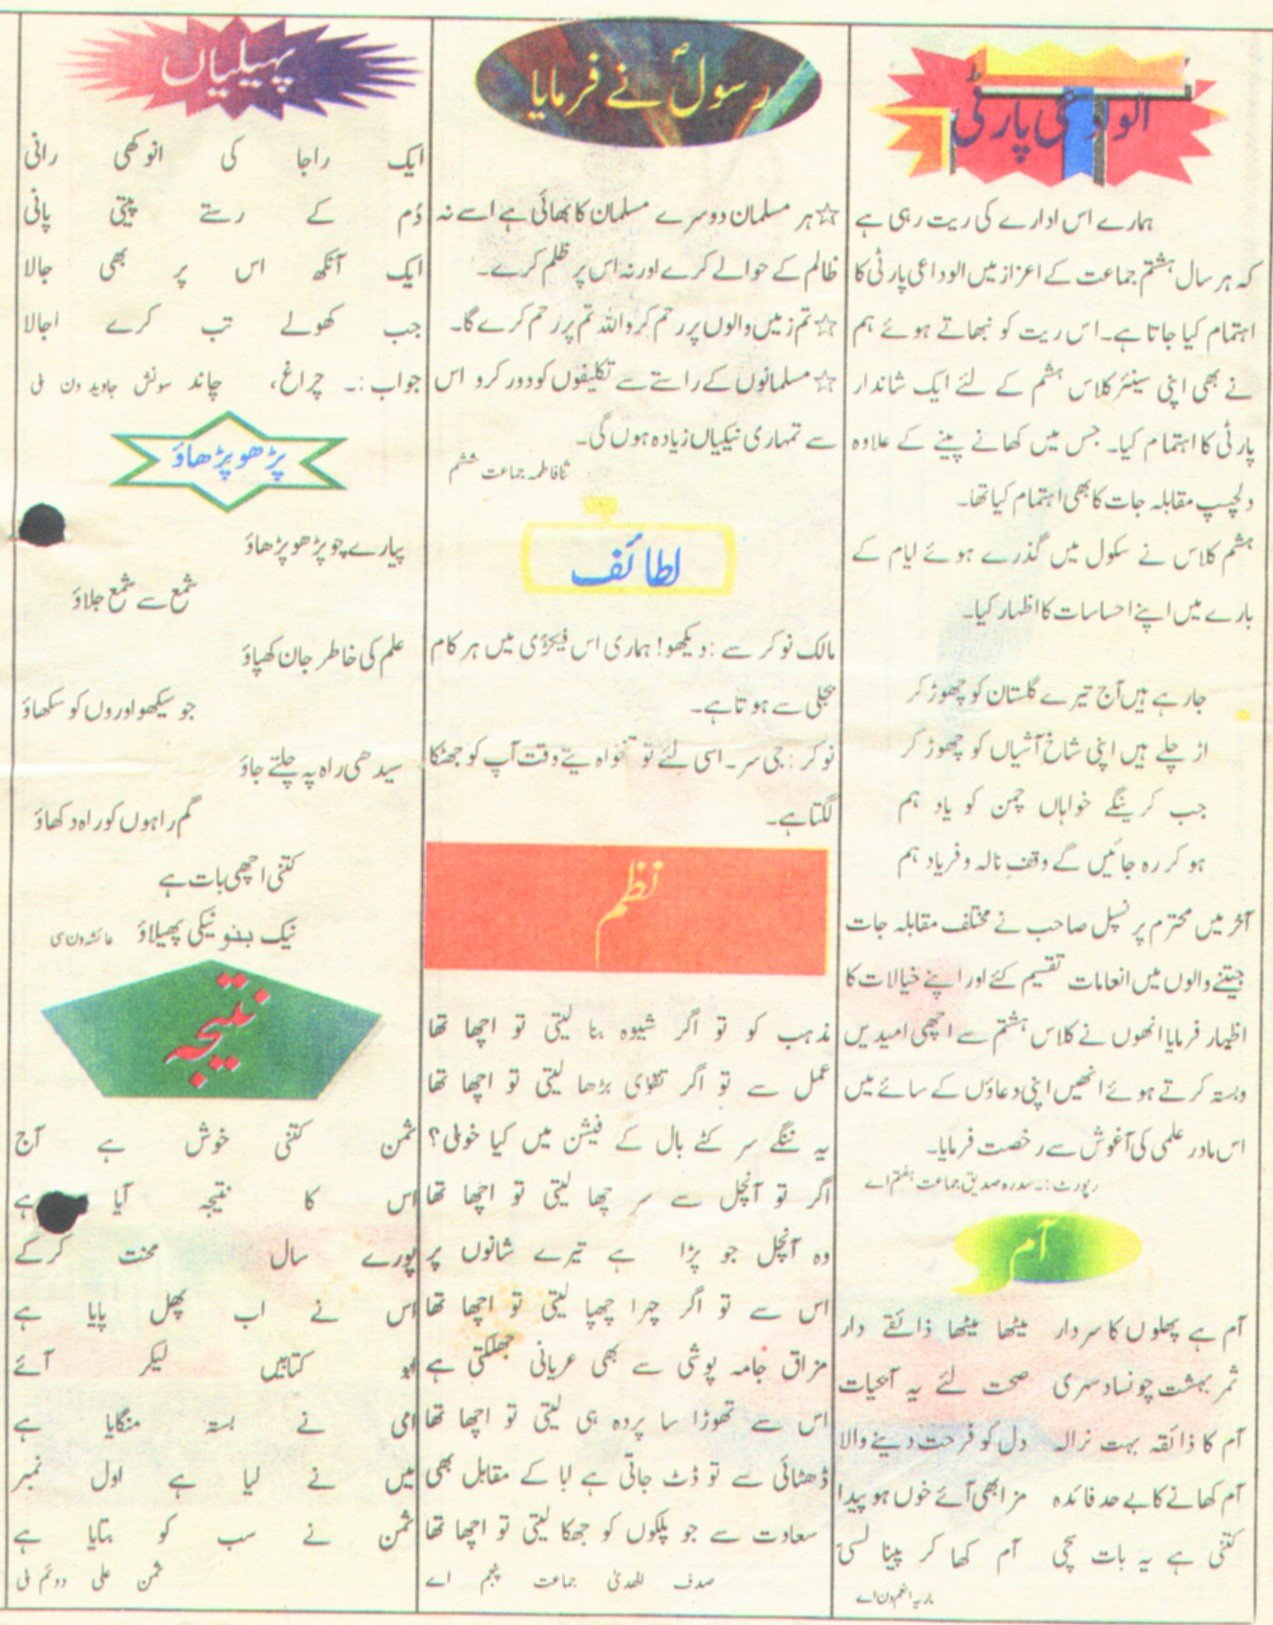 الوداعی پارٹی
ہمارے اس ادارے کی ریت رہی ہے
کہ ہر سال ہشتم جماعت کے اعزاز میں الوداعی پارٹی کا
اہتمام کیا جاتا ہے۔ اس ریت کو نبھاتے ہوئے ہم
نے بھی اپنی سینئر کلاس ہشتم کے لئے ایک شاندار
پارٹی کا اہتمام کیا۔ جس میں کھانے پینے کے علاوہ
دلچسپ مقابلہ جات کا بھی اہتمام کیا تھا۔
ہشتم کلاس نے سکول میں گذرے ہوئے ایام کے
بارے میں اپنے احساسات کا اظہار کیا۔
جا رہے ہیں آج تیرے گلستان کو چھوڑ کر
اڑ چلے ہیں اپنی شاخ آشیاں کو چھوڑ کر
جب کرینگے خواہاں چمن کو یاد ہم
ہو کر رہ جائیں گے وقف نالہ و فریاد ہم
آخر میں محترم پرنسپل صاحب نے مختلف مقابلہ جات
جیتنے والوں میں انعامات تقسیم کئے اور اپنے خیالات کا
اظہار فرمایا انھوں نے کلاس ہشتم سے اچھی امیدیں
وبستہ کرتے ہوئے انھیں اپنی دعاؤں کے سائے میں
اس مادر علمی کی آغوش سے رخصت فرمایا۔
رپورٹ:۔ سدرہ صدیق جماعت ہفتم اے
آم
آم ہے پھلوں کا سردار میٹھا میٹھا ذائقے دار
ثمر بہشت چونسا دسہری صحت لئے یہ آبحیات
آم کا ذائقہ بہت نرالہ دل کو فرحت دینے والا
آم کھانے کا بے حد فائدہ مزا بھی آئے خوں ہو پیدا
کتنی ہے یہ بات سچی آم کھا کر پینا لسی
ماریہ انعم ون اے
رسولؐ نے فرمایا
☆ ہر مسلمان دوسرے مسلمان کا بھائی ہے اسے نہ
ظالم کے حوالے کرے اور نہ اس پر ظلم کرے۔
☆ تم زمیں والوں پر رحم کرو اللہ تم پر رحم کرے گا۔
☆ مسلمانوں کے راستے سے تکلیفوں کو دور کرو اس
سے تمہاری نیکیاں زیادہ ہوں گی۔
ثنا فاطمہ جماعت ششم
لطائف
مالک نوکر سے: دیکھو! ہماری اس فیکٹری میں ہر کام
بجلی سے ہوتا ہے۔
نوکر: جی سر۔ اسی لئے تو تنخواہ دیتے وقت آپ کو جھٹکا
لگتا ہے۔
نظم
مذہب کو تو اگر شیوہ بنا لیتی تو اچھا تھا
عمل سے تو اگر تقوٰی بڑھا لیتی تو اچھا تھا
یہ ننگے سر کٹے بال کے فیشن میں کیا خوبی؟
اگر تو آنچل سے سر چھپا لیتی تو اچھا تھا
وہ آنچل جو پڑا ہے تیرے شانوں پر
اس سے تو اگر چہرا چھپا لیتی تو اچھا تھا
مزاق جامہ پوشی سے بھی عریانی جھلکتی ہے
اس سے تھوڑا سا پردہ ہی لیتی تو اچھا تھا
ڈھٹائی سے تو ڈٹ جاتی ہے ابا کے مقابل بھی
سعادت سے جو پلکوں کو جھکا لیتی تو اچھا تھا
صدف الھدیٰ جماعت پنجم اے
پہیلیاں
ایک راجا کی انوکھی رانی
دُم کے رستے پیتی پانی
ایک آنکھ اس پر بھی جالا
جب کھولے تب کرے اجالا
جواب:۔ چراغ، چاند سونش جاوید ون بی
پڑھو پڑھاؤ
پیارے بچو پڑھو پڑھاؤ
شمع سے شمع جلاؤ
علم کی خاطر جان کھپاؤ
جو سیکھو اوروں کو سکھاؤ
سیدھی راہ پہ چلتے جاؤ
گم راہوں کو راہ دکھاؤ
کتنی اچھی بات ہے
نیک بنو نیکی پھیلاؤ عائشہ ون سی
نتیجہ
ثمن کتنی خوش ہے آج
اس کا نتیجہ آیا ہے
پورے سال محنت کرکے
اس نے اب پھل پایا ہے
ابو کتابیں لیکر آئے
امی نے بستہ منگایا ہے
میں نے لیا ہے اول نمبر
ثمن نے سب کو بتایا ہے
ثمن علی دوئم بی